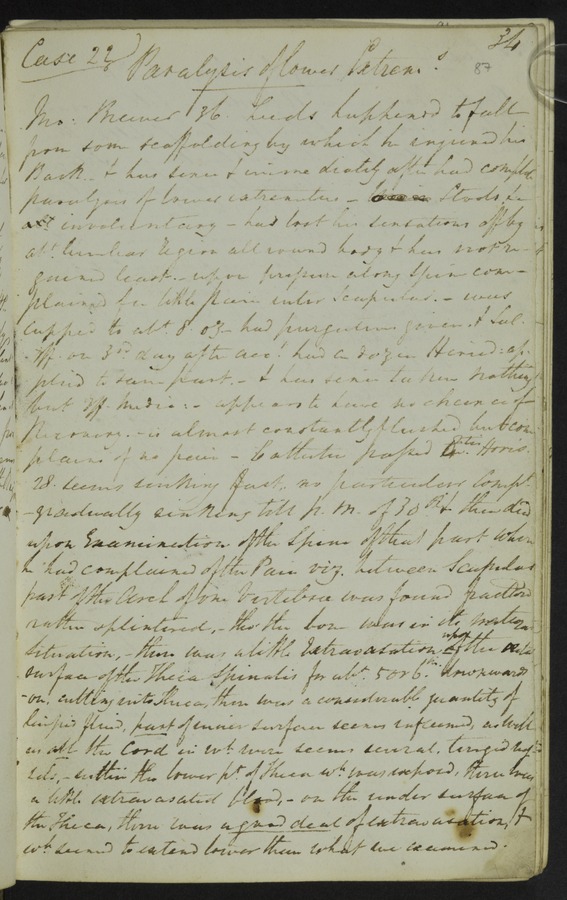 34
Case 22
87
Paralysis of lower Extrem.s
36. Leeds happened to fall
from some scaffolding by which he injured his
Back. & has since & immediately after had complete
paralysis of lower extremities - Stools &c
are involuntary - had lost his sensations off by
abt. Lumbar Region all round body & has not re-
gained least. - upon pressure along spine com-
plained of a little pain inter Scapulas. - was
cupped to abt. 8 oz - had purgatives given. &
on 3rd day after acc. had a dozen Hirud: ap-
plied to same part. - & has since taken nothing
but Eff. - appears to have no chance of
Recovery. - is almost constantly flushed but com-
plains of no pain - Catheter passed
28. seems sinking fast. no particular Compt.
- gradually sinking till p.m. of 30th & then died
upon Examination of the Spine of that part where
he had complained of the Pain viz. between Scapulas
part of the Arch of one Vertebra was found fractured
rather splintered, - tho the bone was in its
situation, - there was a little Extravasation upon the
surface of the Theca Spinalis for abt. 5 or 6 in. downwards
- on cutting into theca, there was a considerable quantity of
limpid fluid, part of inner surface seems inflamed, as well
as all the Cord in wh. were seems several turgid ves-
sels, - within the lower pt. of theca wh. was exposed, there was
a little extravasated blood, - on the under surface of
the Theca, there was a good deal of extravasation, &
wh. seemed to extend lower than what we examined.